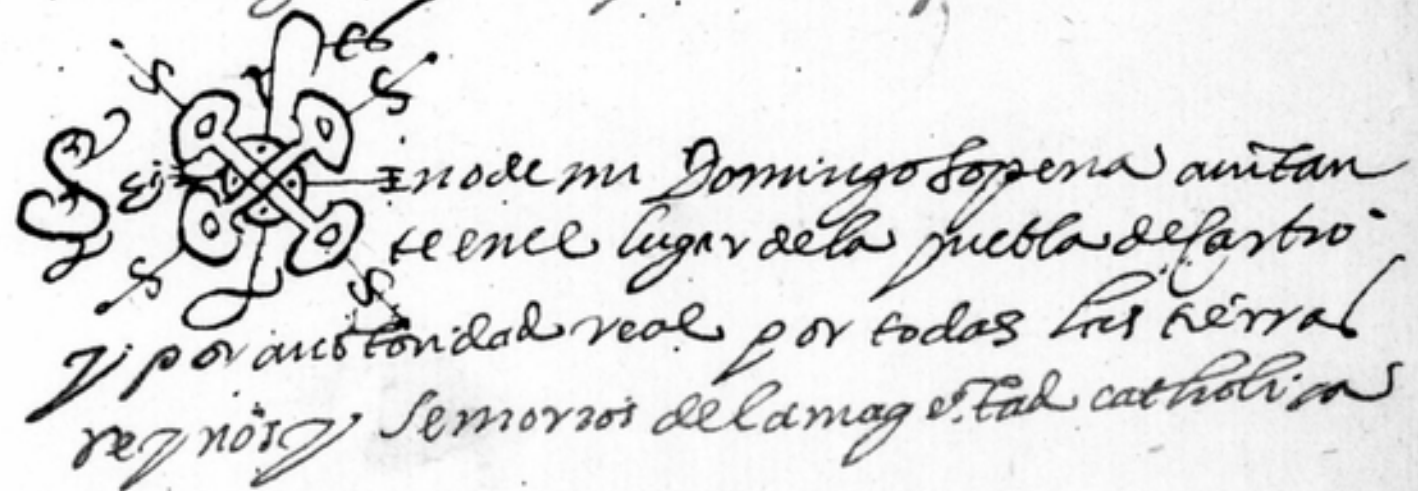 Sig no de mi Domingo Sopena auitan
te en el lugar de la puebla de Castro
y por auctoridad real por todas las tierras
reynos y senorios de la magestad catholica